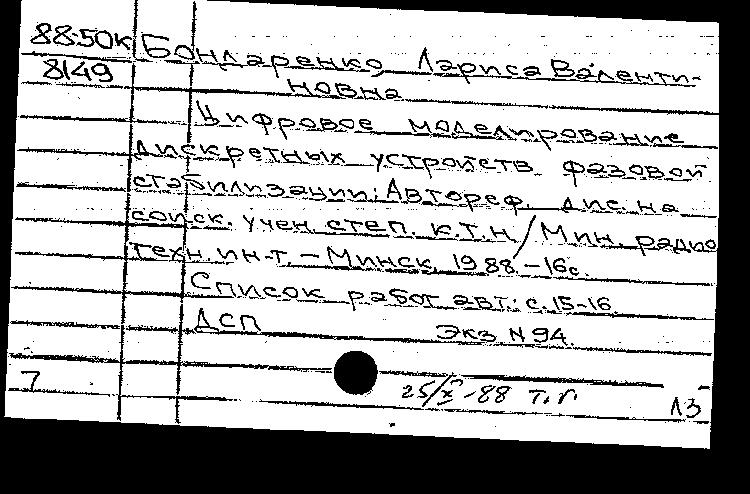 88:50к Бондаренко, Лариса Валенти-
8149 новна
Цифровое моделирование
дискретных устройств фазовой
стабилизации: Автореф. дис. на
соиск. учен. степ. к.т.н. / Мин. радио
техн. ин-т. – Минск, 1988. – 16с.
Список работ авт.: с. 15-16
ДСП Экз N 94.
7 25/X-88 т.г. л3